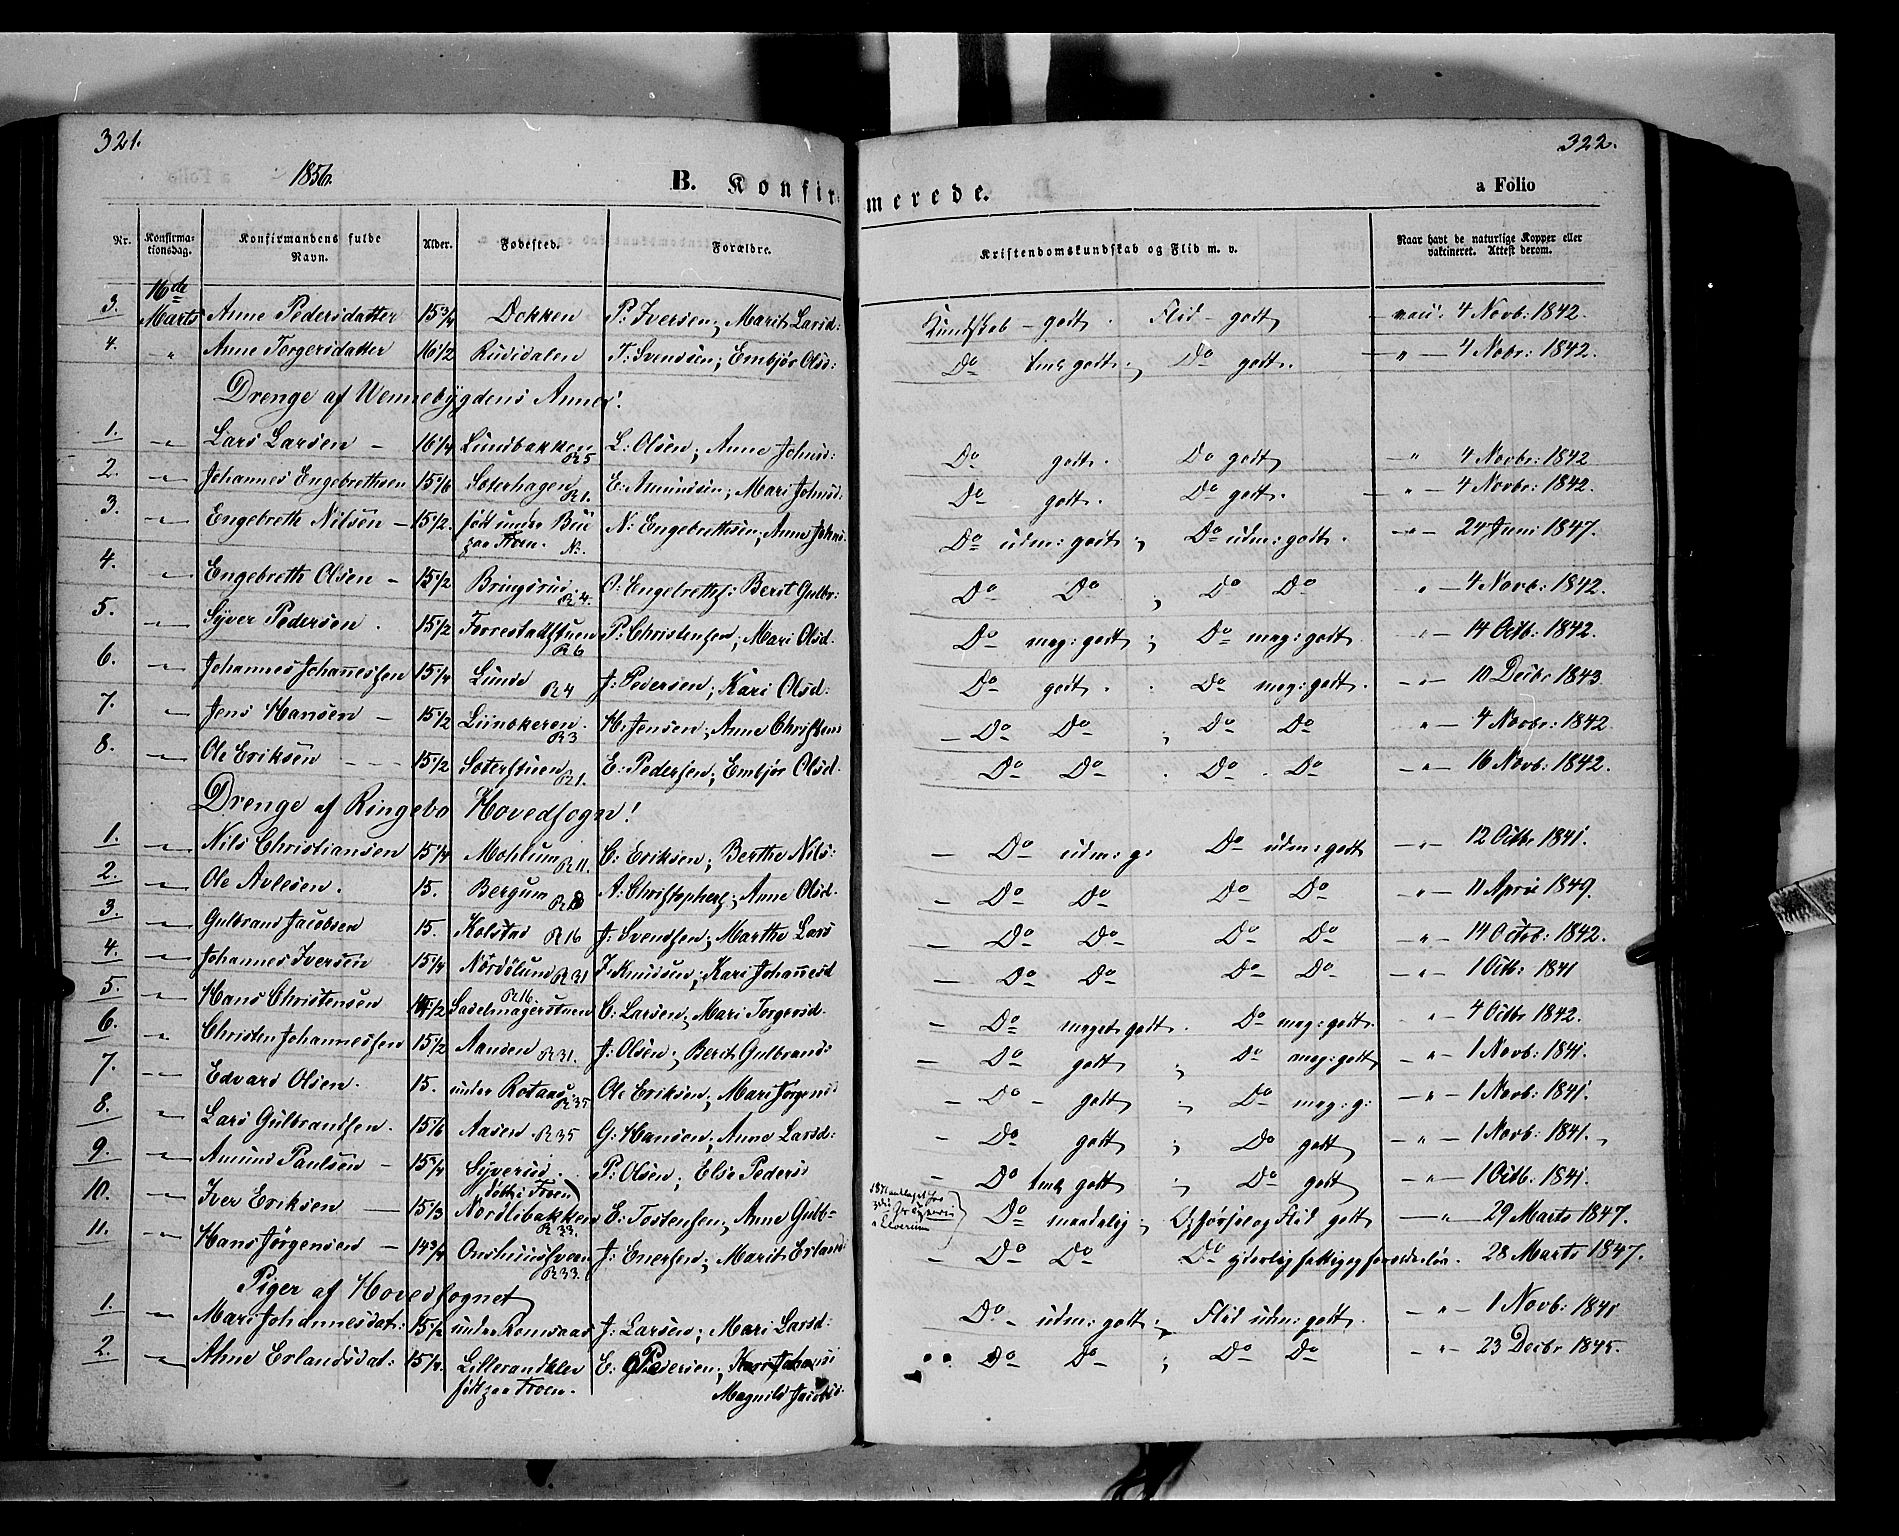 321.
322.
1856.
B. Konfirmerede.
a Folio
Nr. Konfirmationsdag. Konfirmandens fulde Navn. Alder. Fødested. Forældre. Kristendomskundskab og Flid m. v. Naar havt de naturlige Kopper eller vaktineret. Attest derom.
3. 16de Marts Anne Pedersdatter 15 3/4 Dokken P: Iversen; Marit Larsd: Kundskab - godt. Flid - godt 4 Novb: 1842.
4. " Anne Torgersdatter 16 1/2 Rudidalen T: Svendsen; Embjør Olsd: Do godt; Do godt. — " — 4 Nobr: 1842.
Drenge af Vennebygdens Annex!
1. — Lars Larsen — 16 1/4 Lundbakken R5 L: Olsen; Anne Johnsd: Do godt. Do godt " 4 Novbr: 1842
2. — Johannes Engebrethsen 15 1/6 Soterhagen R1. E: Amundsen; Mari Johnsd: Do godt. Do godt. — " — 4 Novbr: 1842.
3. — Engebreth Nilsen — 15 1/2. født under Bue paa Froen. N: N: Engebrethsen; Anne Johns Do udm: godt; Do udm: godt. — " — 24 Juni 1847.
4. — Engebreth Olsen — 15 1/2 Bringsrud R4. O: Engebrethss: Berit Gulbr: Do Do ; Do Do " — 4 Novb: 1842.
5. — Syver Pedersen. 15 1/2 Forrestadstuen R6 P: Christensen; Mari Olsd. Do meg: godt; Do meg: godt. " — 14 Octb: 1842.
6. — Johannes Johanessen 15 1/4 Lunde R4 J: Pedersen; Kari Olsd: Do godt. Do meg: godt. — " — 10 Decbr 1843.
7. — Jens Hansen — 15 1/2 R3 H: Jensen; Anne Christens — Do Do ; Do Do " — 4 Novbr: 1842
8. — Ole Eriksen — 15 1/2 Soterstuen R1. E: Pedersen; Embjør Olsd. Do Do . Do . Do — " — 16 Novb: 1842.
Drenge af Ringebo Hovedsogn!
1. — Nils Christiansen 15 1/4 Mohlum R11. C: Eriksen; Berthe Nils: — Do udm: g: Do udm: godt — " — 12 Octbr 1841.
2. — Ole Avlesen. 15. Bergum A: Christophers; Anne Olsd. — Do Do Do Do " — 11 April 1849.
3. — Gulbrand Jacobsen 15. Kolstad R16 J: Svendsen; Marthe Lars — Do Do Do Do — " — 14 Octob: 1842.
4. — Johannes Iversen 15 1/4 Nordölund R31 J. Knudsen; Kari Johanesd — Do Do Do Do — " — 1 Octb: 1841
5. — Hans Christensen R16. Sadelmagerstuen C: Larsen; Mari Torgersd. — Do meget godt. Do meg: godt. " — 4 Octbr 1842.
6. — Christen Johannessen 15 1/2 Aansen R31. J: Olsen; Berit Gulbrands — Do godt ; Do meg: godt — " — 1 Novb: 1841.
7. — Edvard Olsen. 15. under Rotaas R35 Ole Eriksen; Mari Jørgens — Do — godt ; Do meg: g: — " — 1 Novb: 1841.
8. — Lars Gulbrandsen. 15 1/6 Aasen R35 G: Hansen; Anne Larsd: — Do godt ; Do godt — " — 1 Novb: 1841.
9. — Amund Paulsen — 15 3/4 Syverud. (født i Froen) P: Olsen; Elie Peders — Do godt ; Do godt " — 1 Octb. 1841.
10. — Iver Eriksen — 15 1/3 Nordlibakken R33. E: Tostensen; Anne Gulb= Do maadelig; Opførsel og Flid godt — " — 29 Marts 1847.
11. — Hans Jørgensen — 14 3/4 R33. J: Enersen; Marit Erlands — Do Do Do yderlig fattig og forældreløs. 28 Marts 1847.
Piger af Hovedsognet
1. — Mari Johannesdat: 15 1/2 under Romsaas J: Larsen; Mari Larsd: Do - udm: godt; Flid udm: godt. — " — 1 Novb: 1841
2. — Anne Erlandsdat: 15 1/4. født paa Froen. E: Pedersen; Magnild Jacobsd. Do Do ; Do Do — " — 23 Decbr 1845.